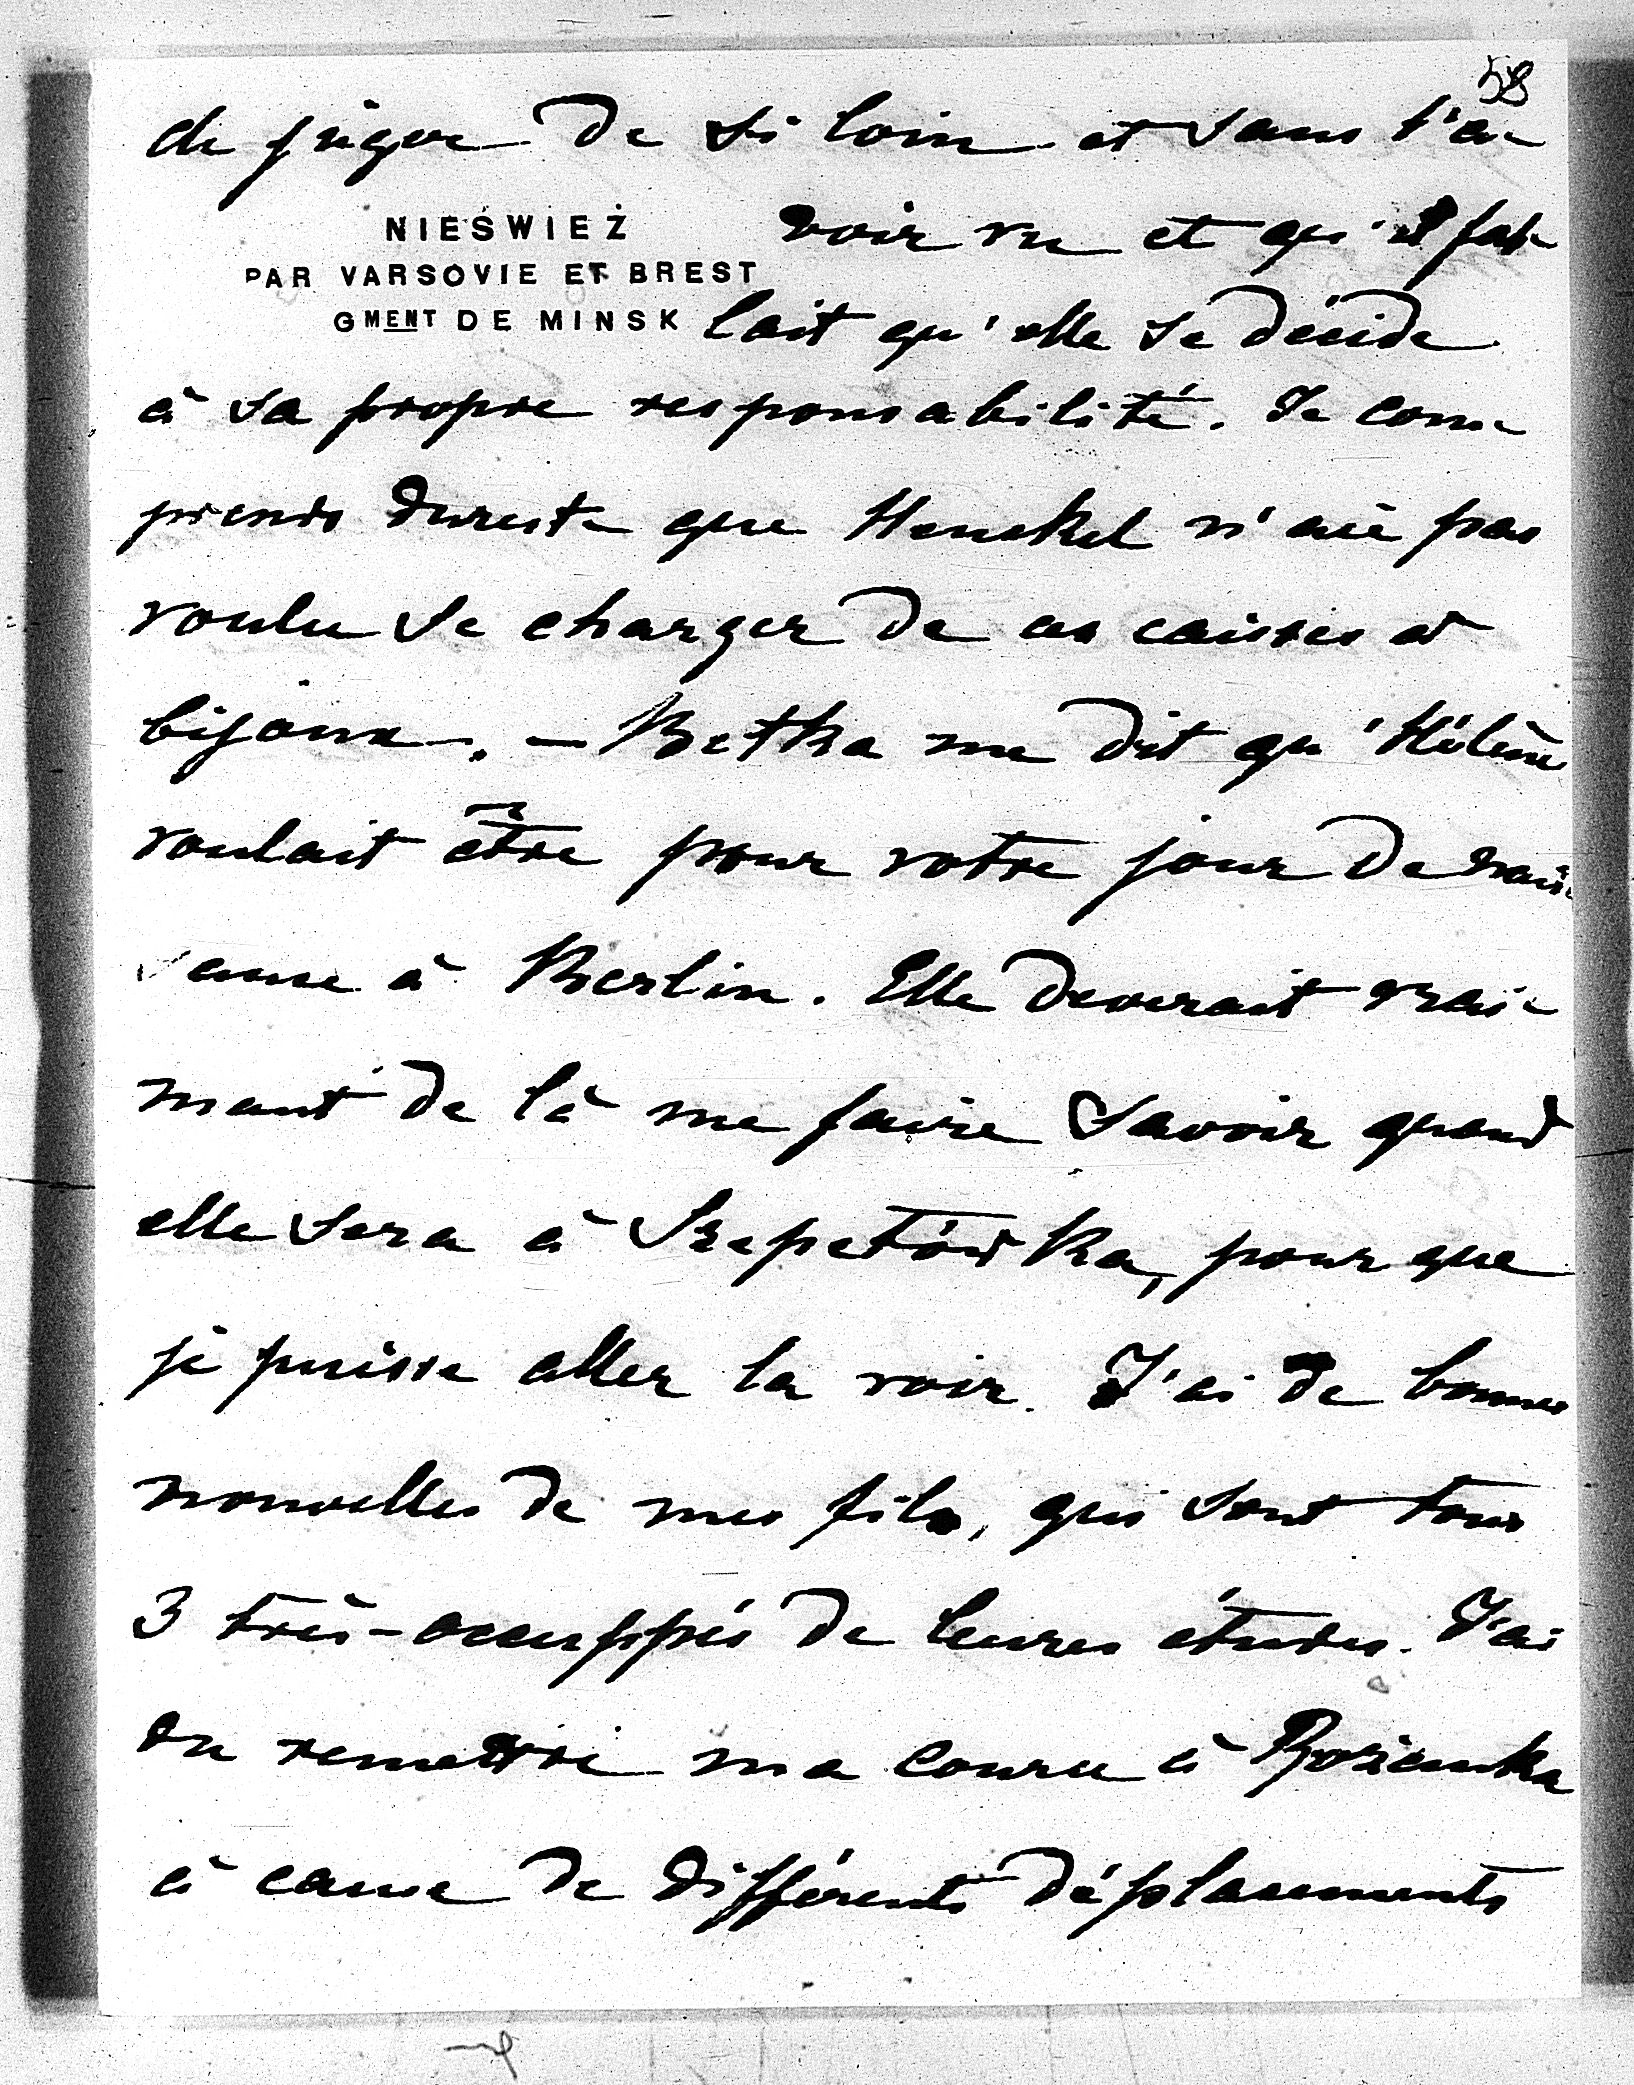 58
de juger de si loin et sans l'a-
NIEŚWIEŻ
voir vu et qu'il fal-
PAR VARSOVIE ET BREST
GMENT DE MINSK
lait qu'elle se décide
à sa propre responsabilité. Je com-
prends dureste que Henckel n'aie pas
voulu se charger de ces caisses et
bijoux. — Betka me dit qu'Hélène
voulait être pour votre jour de nais-
sance à Berlin. Elle deverait vrai-
mant de là me faire savoir quand
elle sera à Szepetówka, pour que
je puisse aller la voir. J'ai de bonnes
nouvelles de mes fils, qui sont tous
3 très-occuppés de leures études. J'ai
du remettre ma course à Rozianka
à cause de différents déplacements